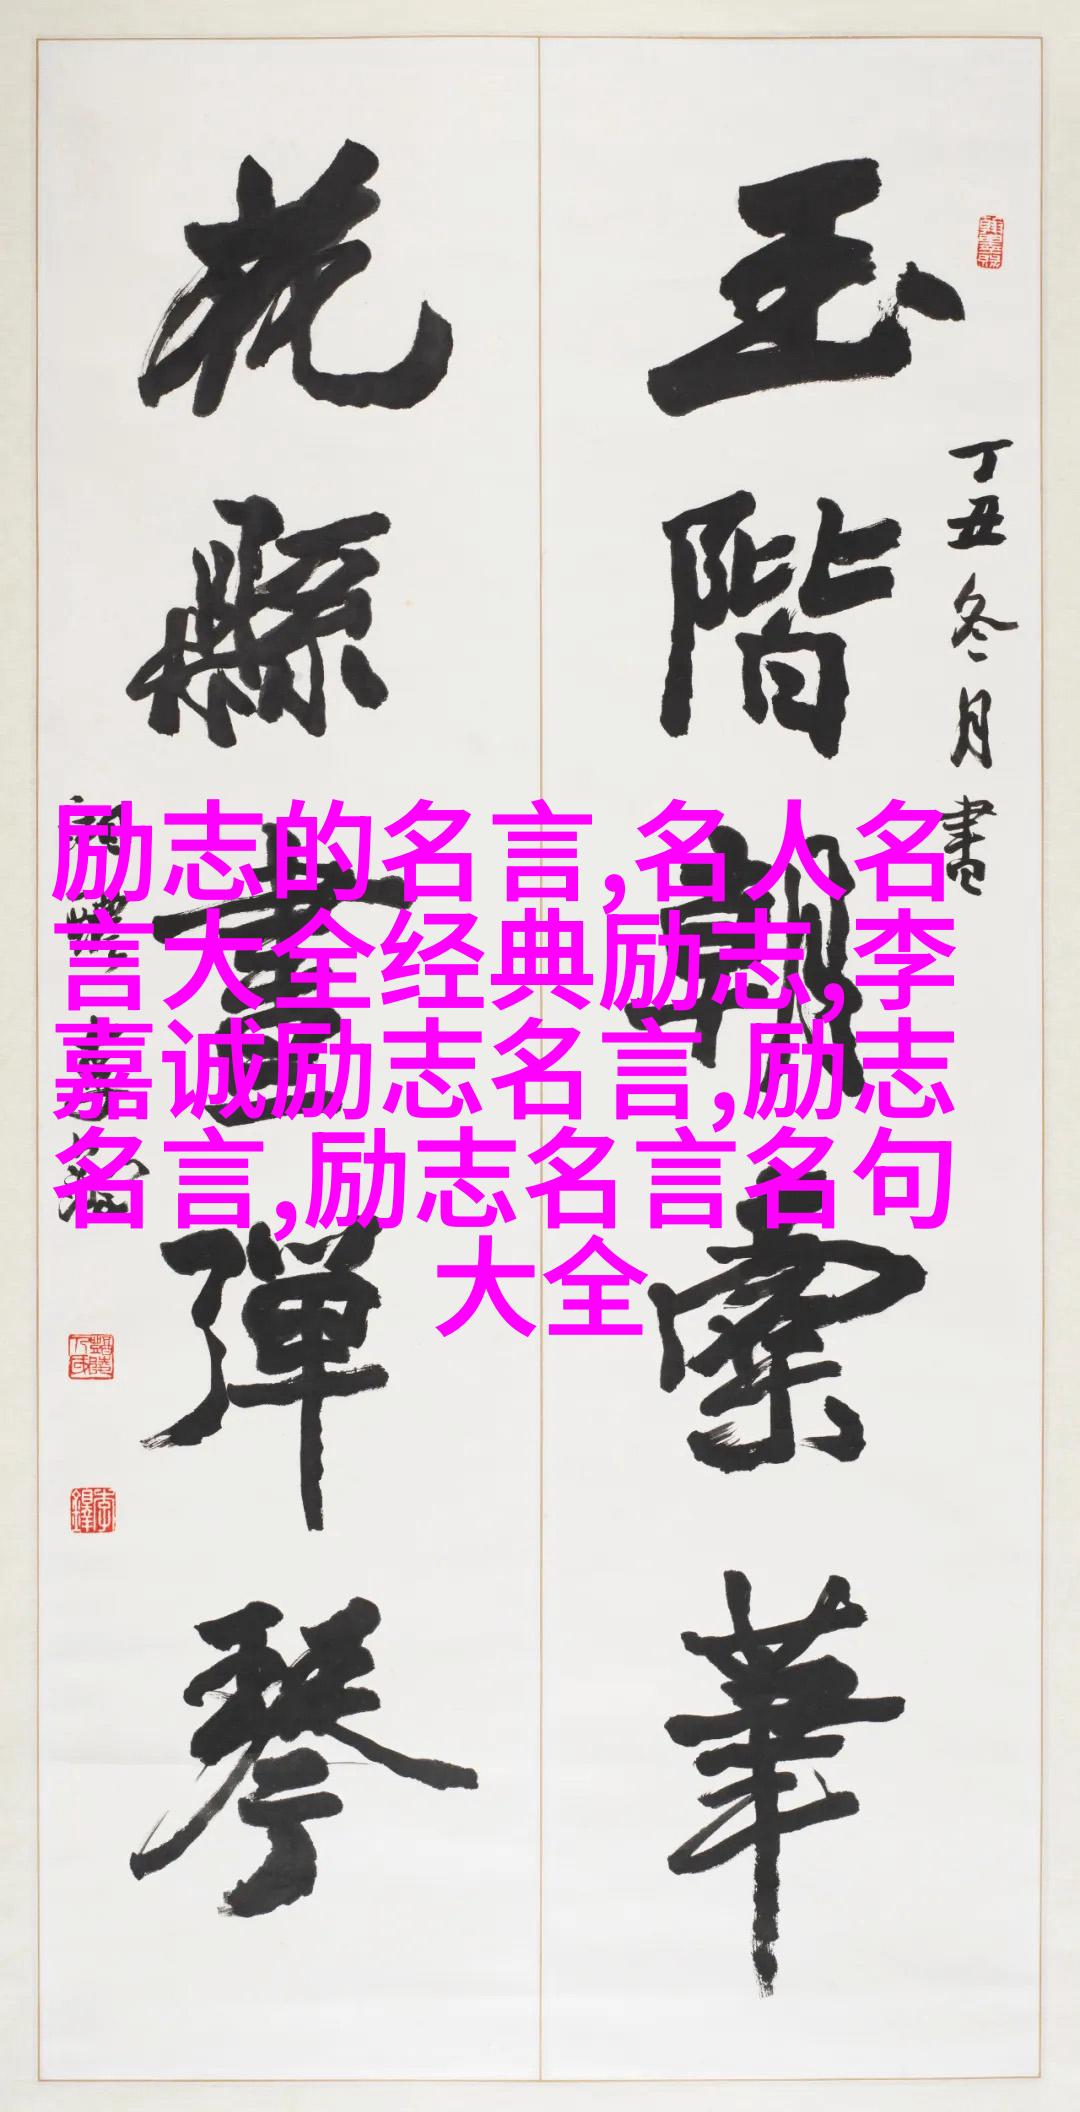 玉階朝索華
花縣晝彈琴
丁丑冬月書
励志的名言,名人名
言大全经典励志,李
嘉诚励志名言,励志
名言,励志名言名句
大全